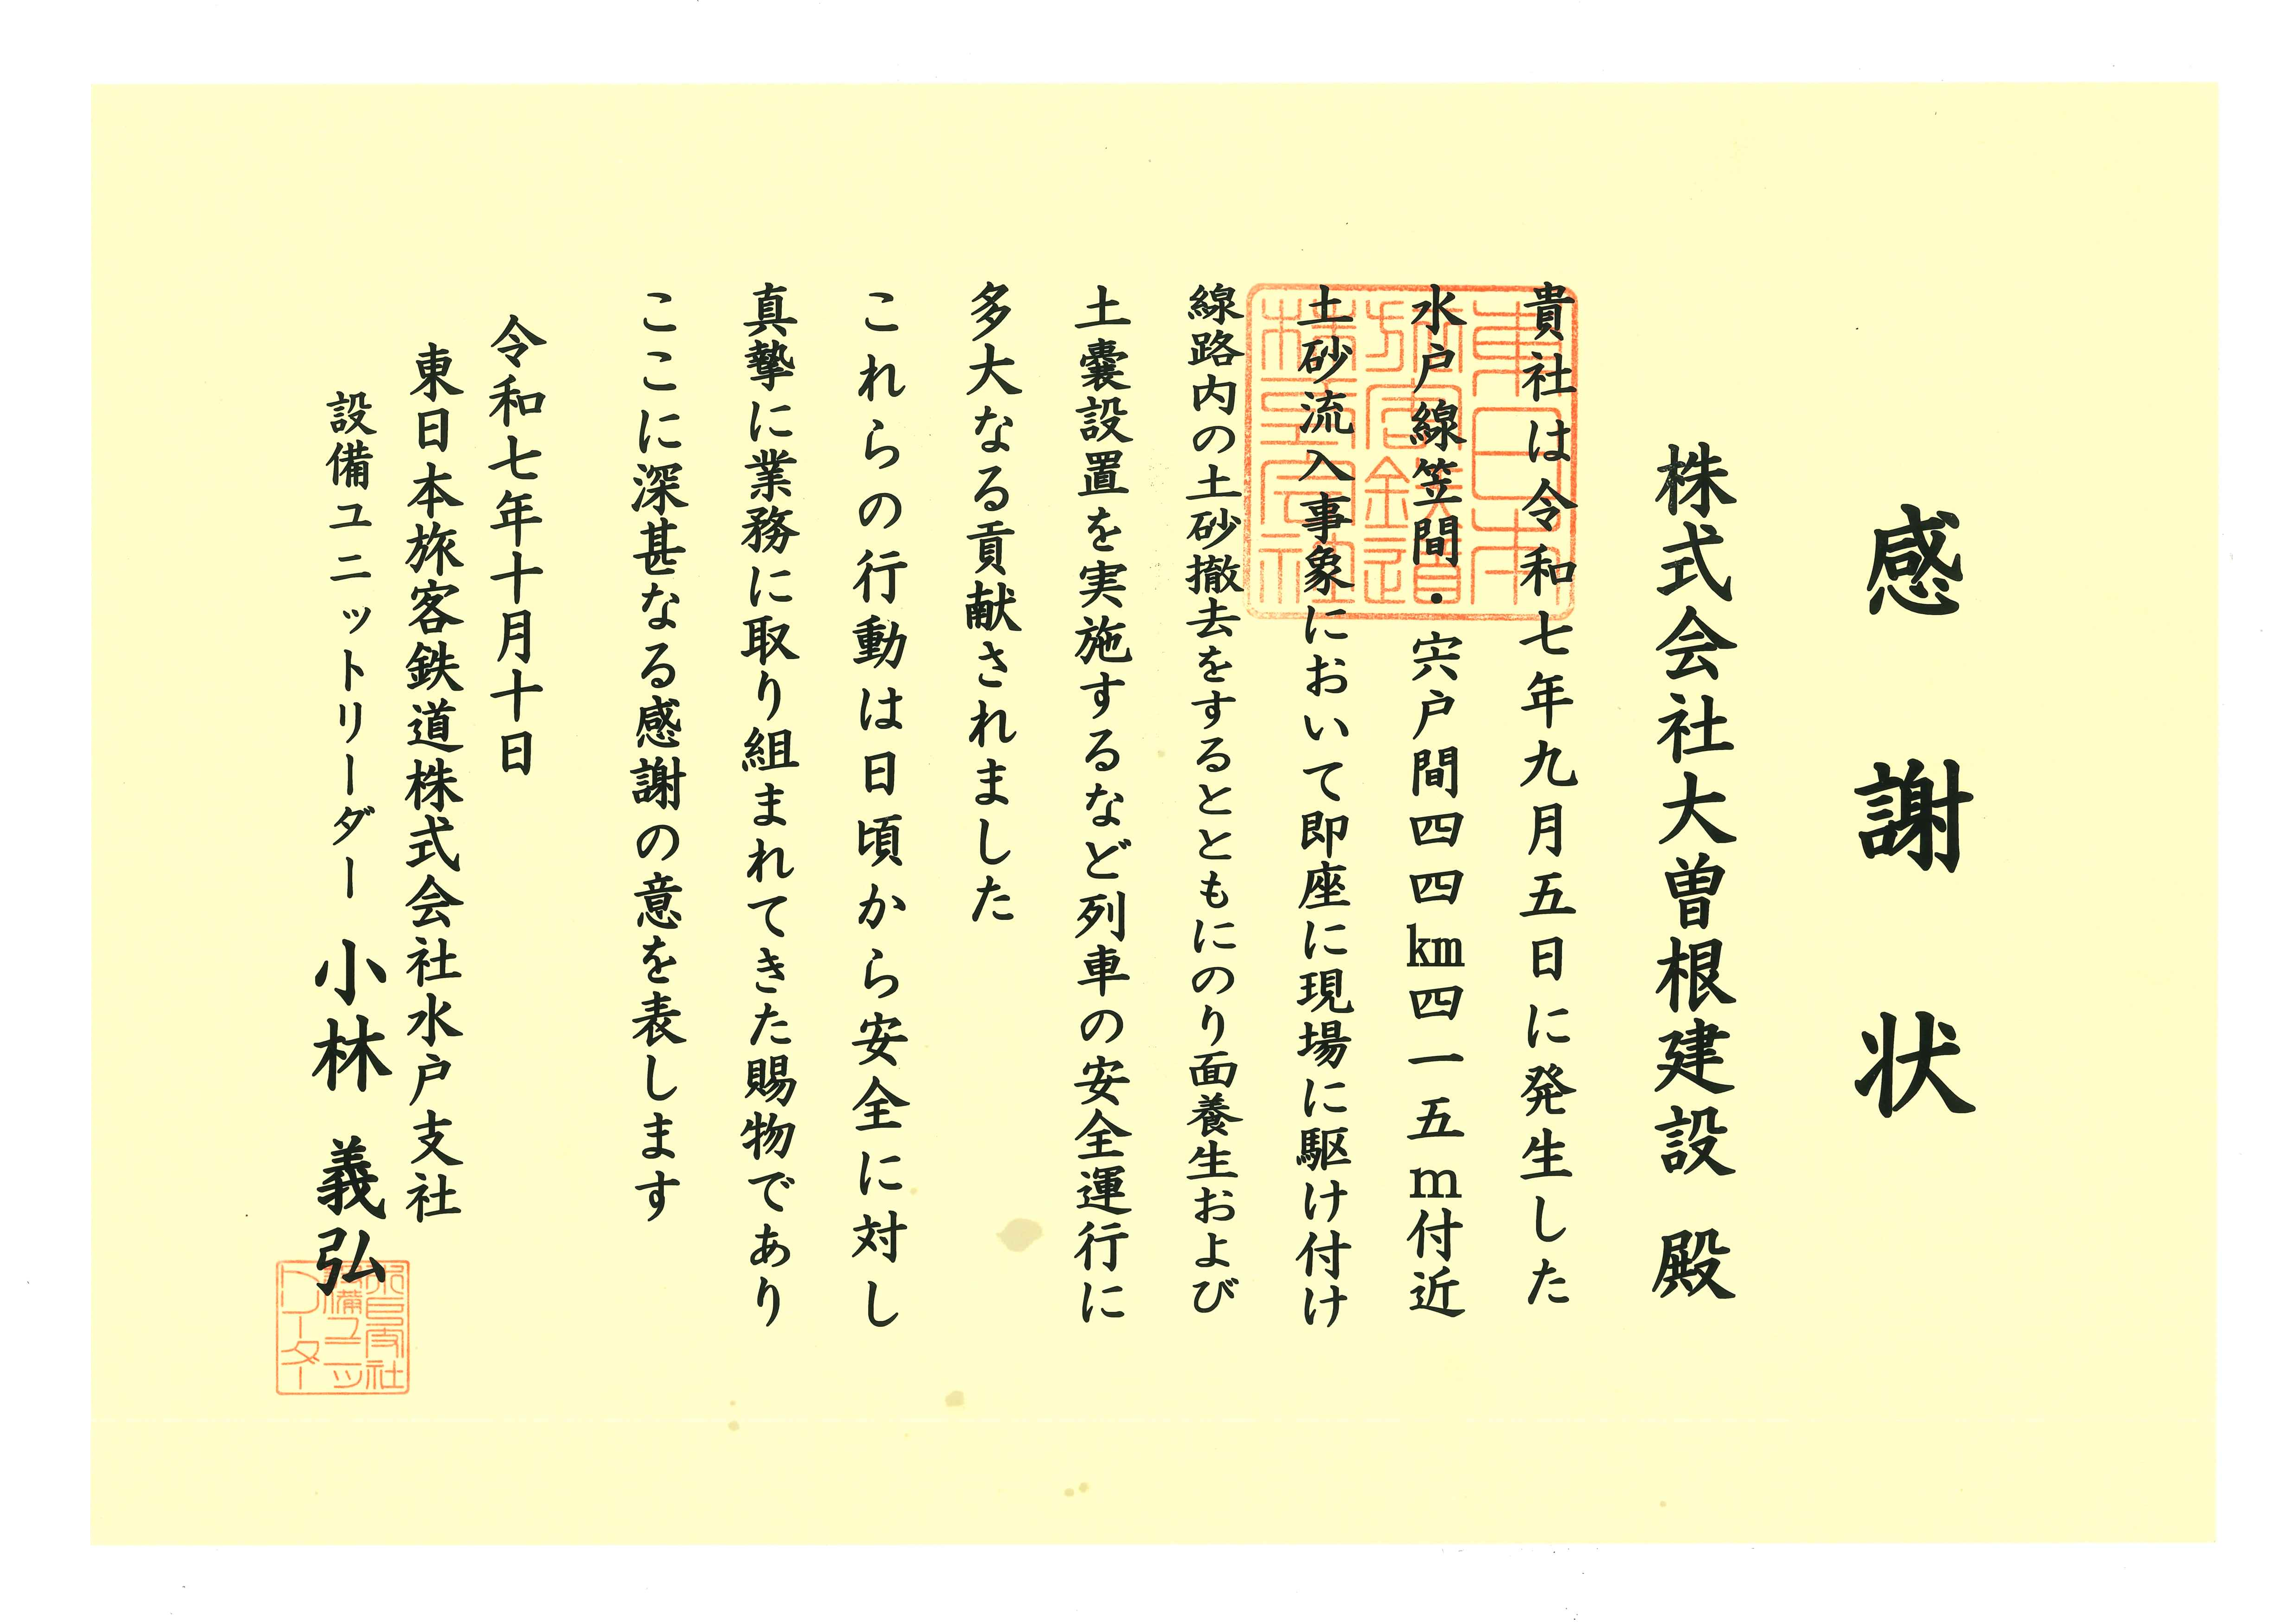 感謝状
株式会社大曽根建設 殿
貴社は令和七年九月五日に発生した
水戸線笠間・宍戸間四四㎞四一五ｍ付近
土砂流入事象において即座に現場に駆け付け
線路内の土砂撤去をするとともにのり面養生および
土嚢設置を実施するなど列車の安全運行に
多大なる貢献されました
これらの行動は日頃から安全に対し
真摯に業務に取り組まれてきた賜物であり
ここに深甚なる感謝の意を表します
令和七年十月十日
東日本旅客鉄道株式会社水戸支社
設備ユニットリーダー 小林 義弘
東日本
旅客鉄道
株式会社